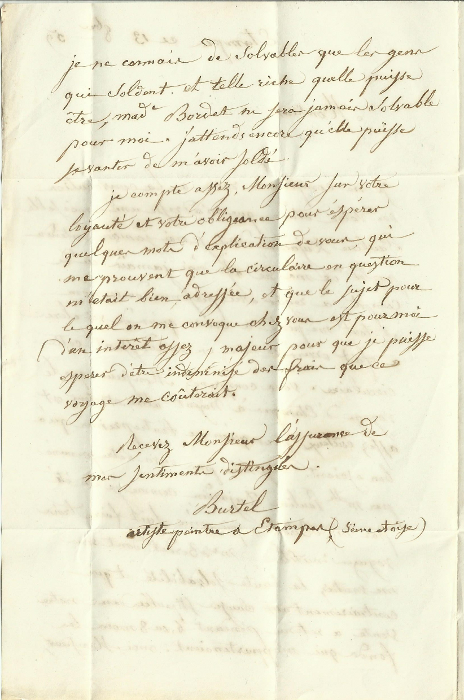 je ne connais de Solvables que les gens
qui Soldent. et telle riche qu'elle puisse
être, made Bordet ne sera jamais Solvable
pour moi. J'attends encore qu'elle puisse
se vanter de m'avoir soldé
je compte assez, Monsieur sur votre
loyauté et votre obligeance pour espérer
quelques mots d'explication de vous, qui
me prouvent que la circulaire en question
m'était bien adressée, et que le sujet pour
le quel on me convoque chez vous est pour moi
d'un interêt assez majeur pour que je puisse
esperer d'être indemnisé des frais que ce
voyage me coûterait.
Recevez Monsieur l'assurance de
mes sentiments distingués.
Burtel
artiste peintre a Etampes (Seine et oise)